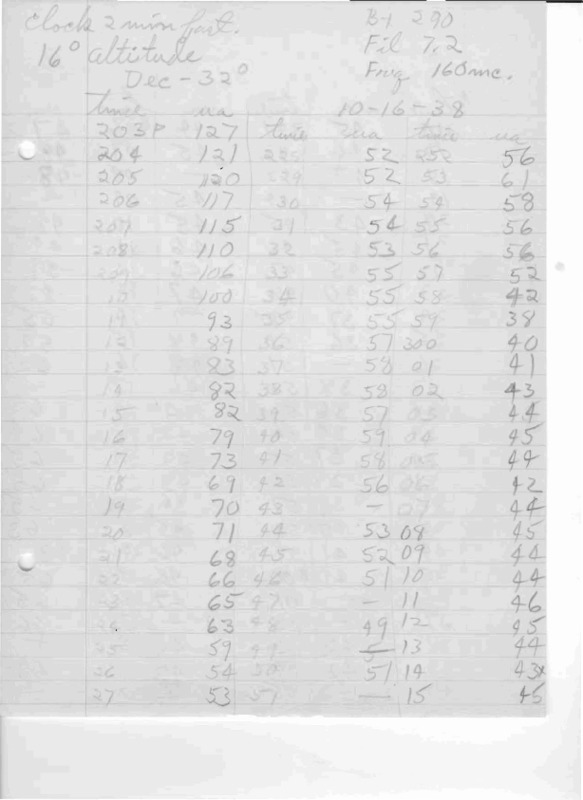 clock 2 min fast. B-1 290
16° altitude Fil 7.2
Dec -32° Freq 160 mc.
time ua 10-16-38
203P 127 time ua time ua
204 121 52 252 56
205 120 229 52 53 61
206 117 30 54 54 58
207 115 31 54 55 56
208 110 32 53 56 56
209 106 33 55 57 52
10 100 34 55 58 42
93 35 55 59 38
12 89 36 57 300 40
13 83 37 58 01 41
14 82 38 58 02 43
15 82 39 57 03 44
16 79 40 59 04 45
17 73 41 58 05 44
18 69 42 56 06 42
19 70 43 - 07 44
20 71 44 53 08 45
21 68 45 52 09 44
22 66 46 51 10 44
23 65 47 - 11 46
63 48 49 12 45
25 59 49 13 44
26 54 50 51 14 43x
27 53 51 - 15 45